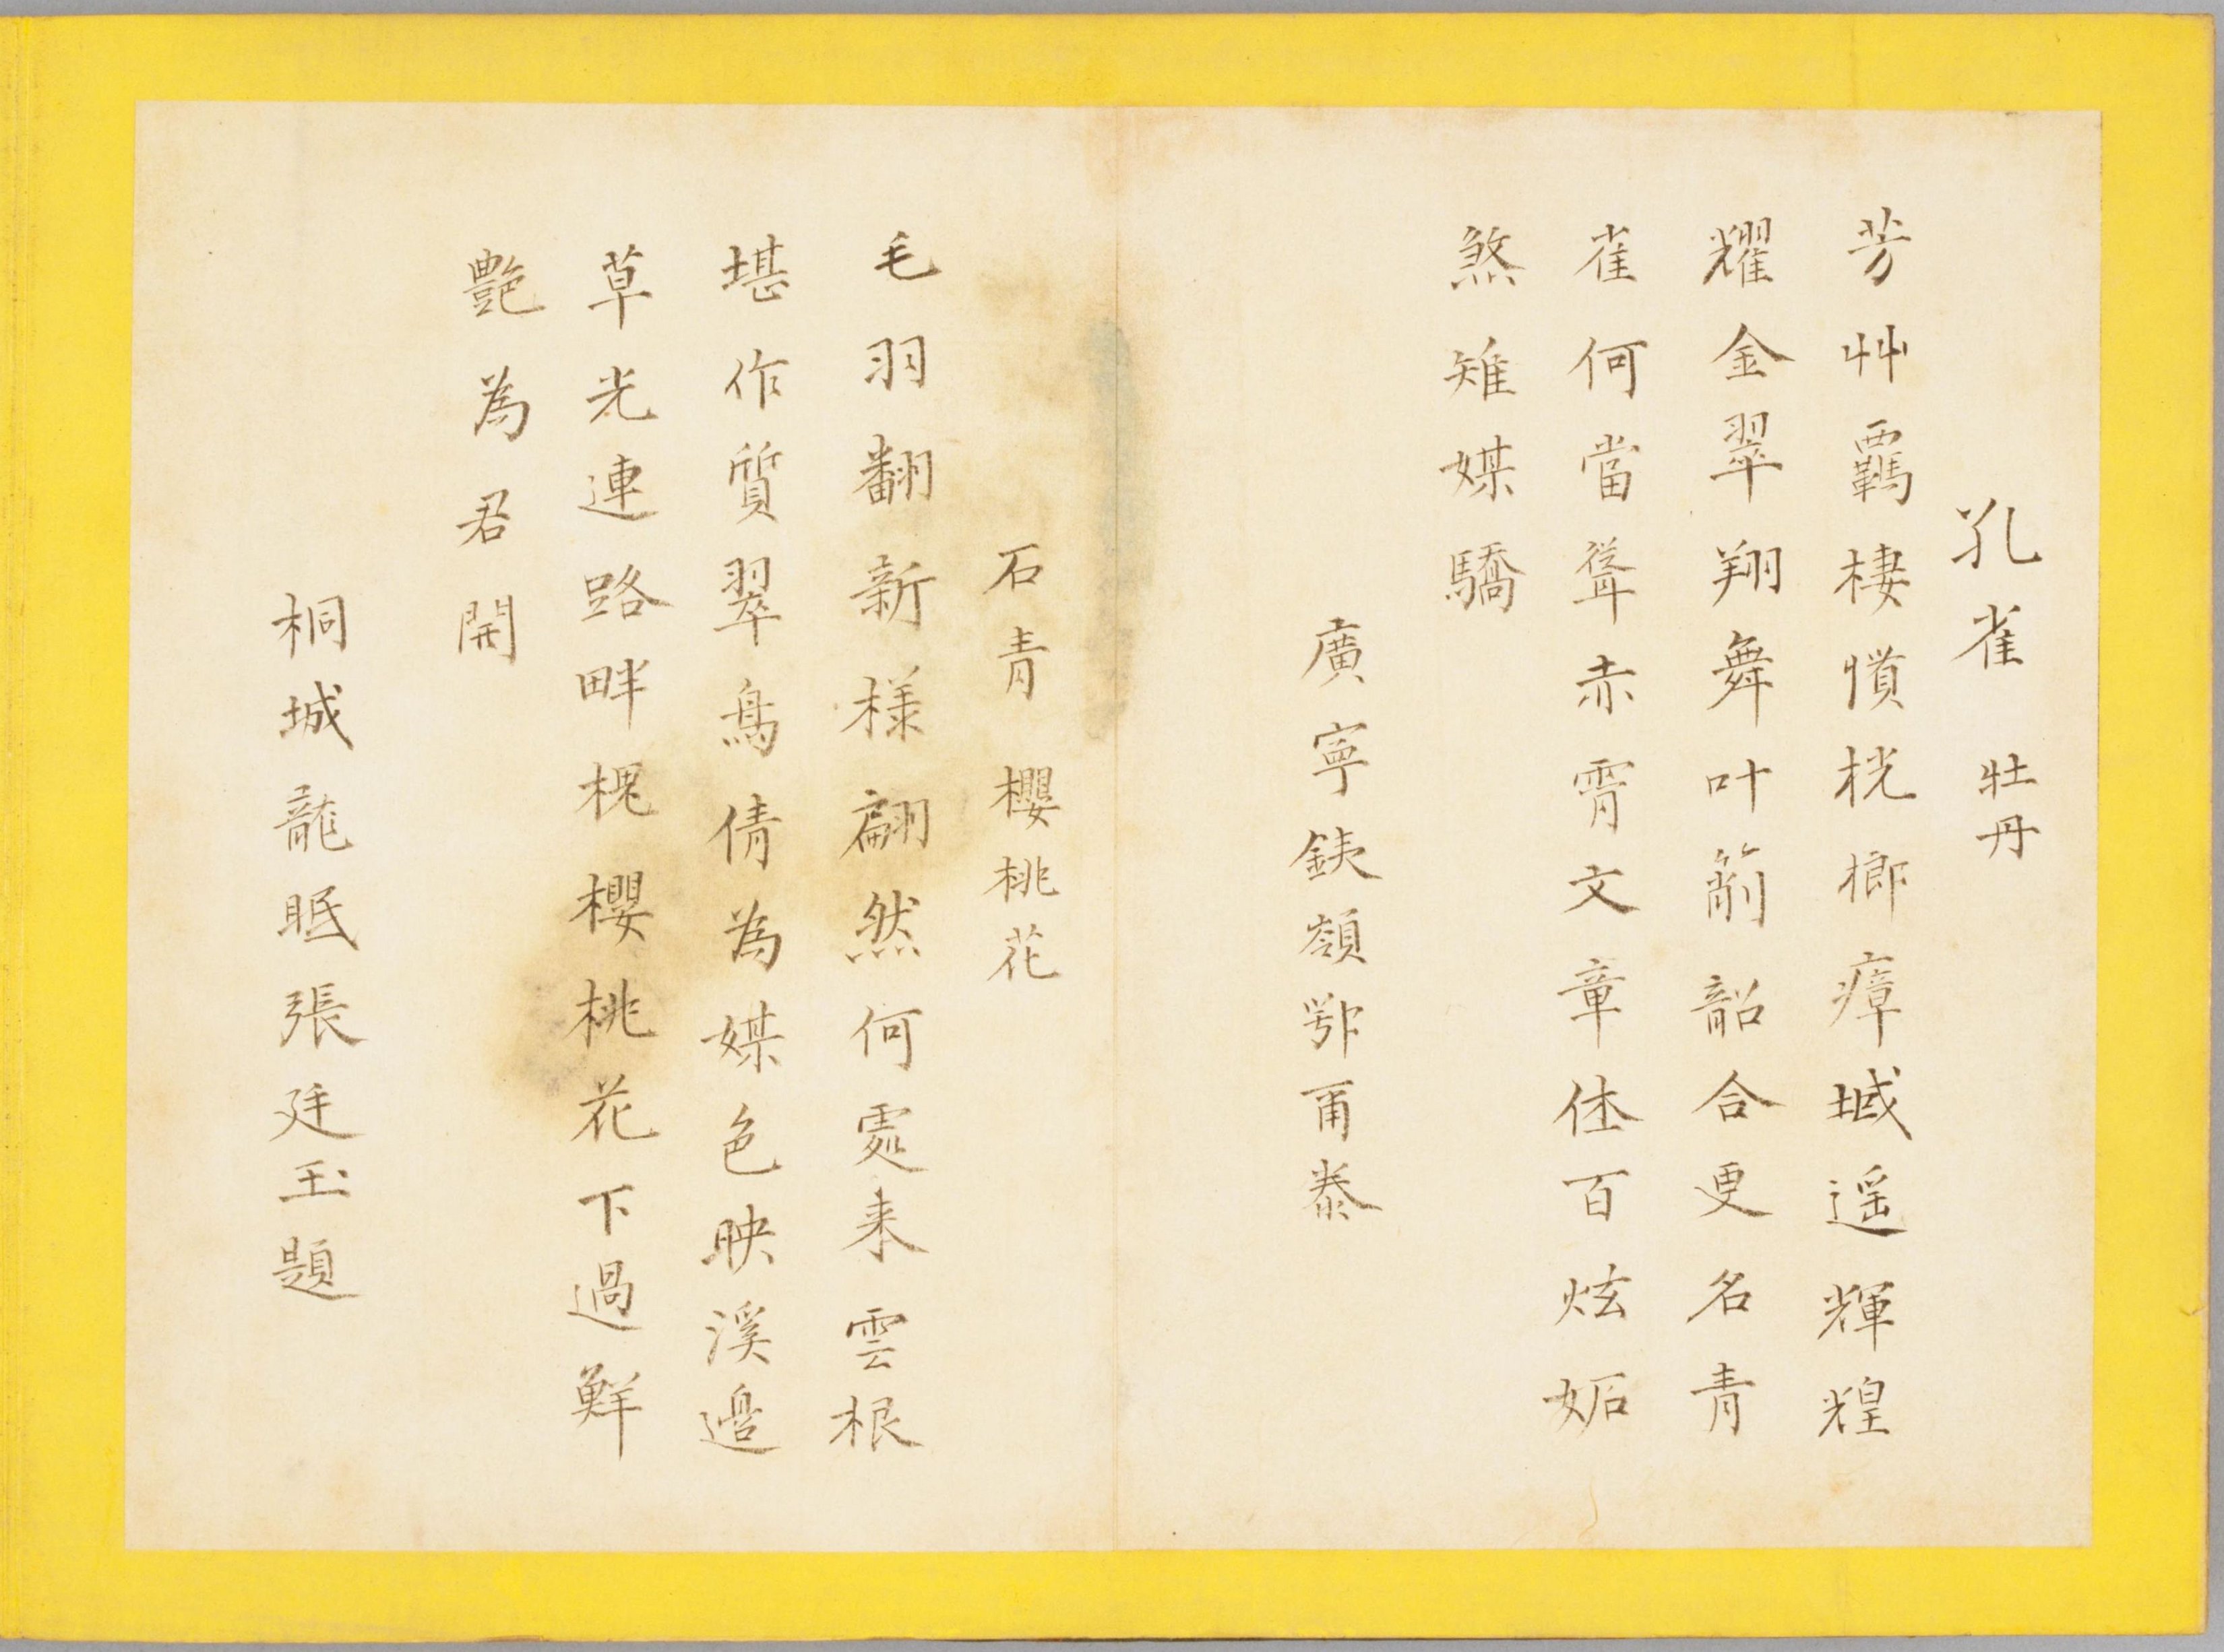 孔雀 牡丹
芳艸羈棲慣桄榔瘴域遥輝煌
耀金翠翔舞叶箾韶合更名青
雀何當聳赤霄文章任百炫妬
煞雉媒驕
廣寧鐵嶺鄂爾泰
石青 櫻桃花
毛羽翻新様翩然何處来雲根
堪作質翠鳥倩為媒色映溪邉
草光連路畔槐櫻桃花下過鮮
艷為君開
桐城龍眠張廷玉題